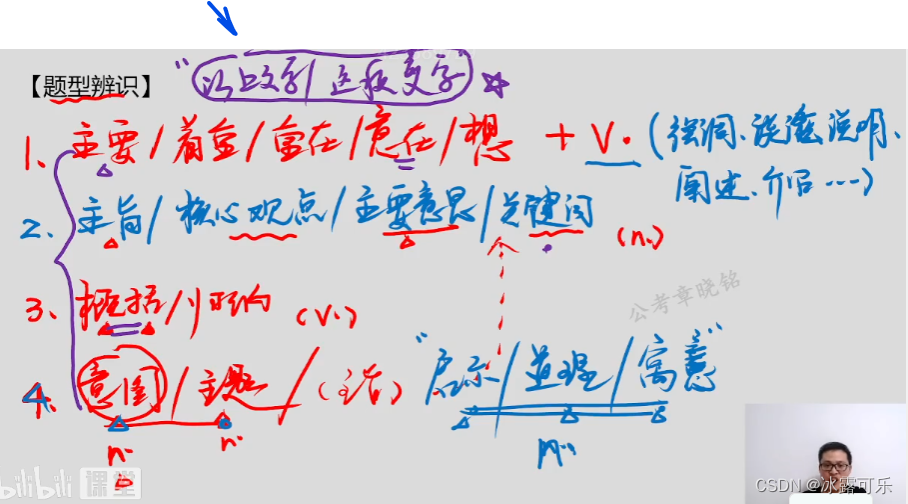 【题型辨识】 "以上文字/这段文字"
1、主要/着重/旨在/意在/想 + V.(强调、谈论、说明、
阐述、介绍……)
2、主旨/核心观点/主要意思/关键词 (n.)
3、概括/归纳 (V.)
公考章晓铭
4、意图/主题/(主旨) "启示/道理/寓意"
n. n. n.
bilibili 课堂
CSDN @冰露可乐